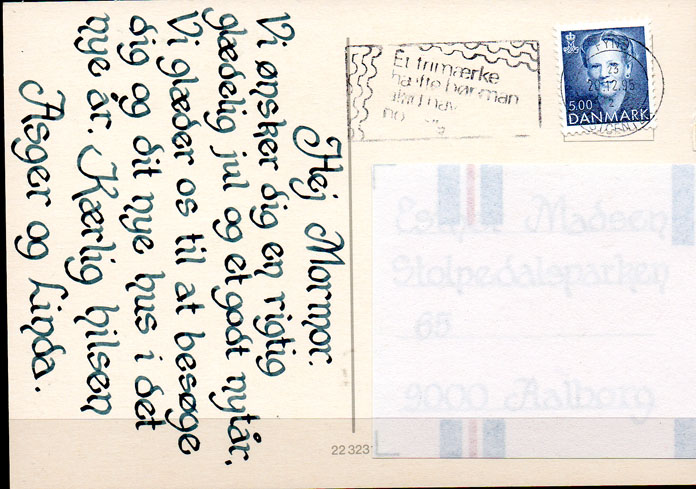 Hej Mormor.
Vi ønsker dig en rigtig
glædelig jul og et godt nytår.
Vi glæder os til at besøge
dig og dit nye hus i det
nye år. Kærlig hilsen
Asger og Linda.
Et frimærke
man
5.00
DANMARK
FYNS
20.12.95
Madsen
Stolpedalsparken
65
9000 Aalborg
22 323